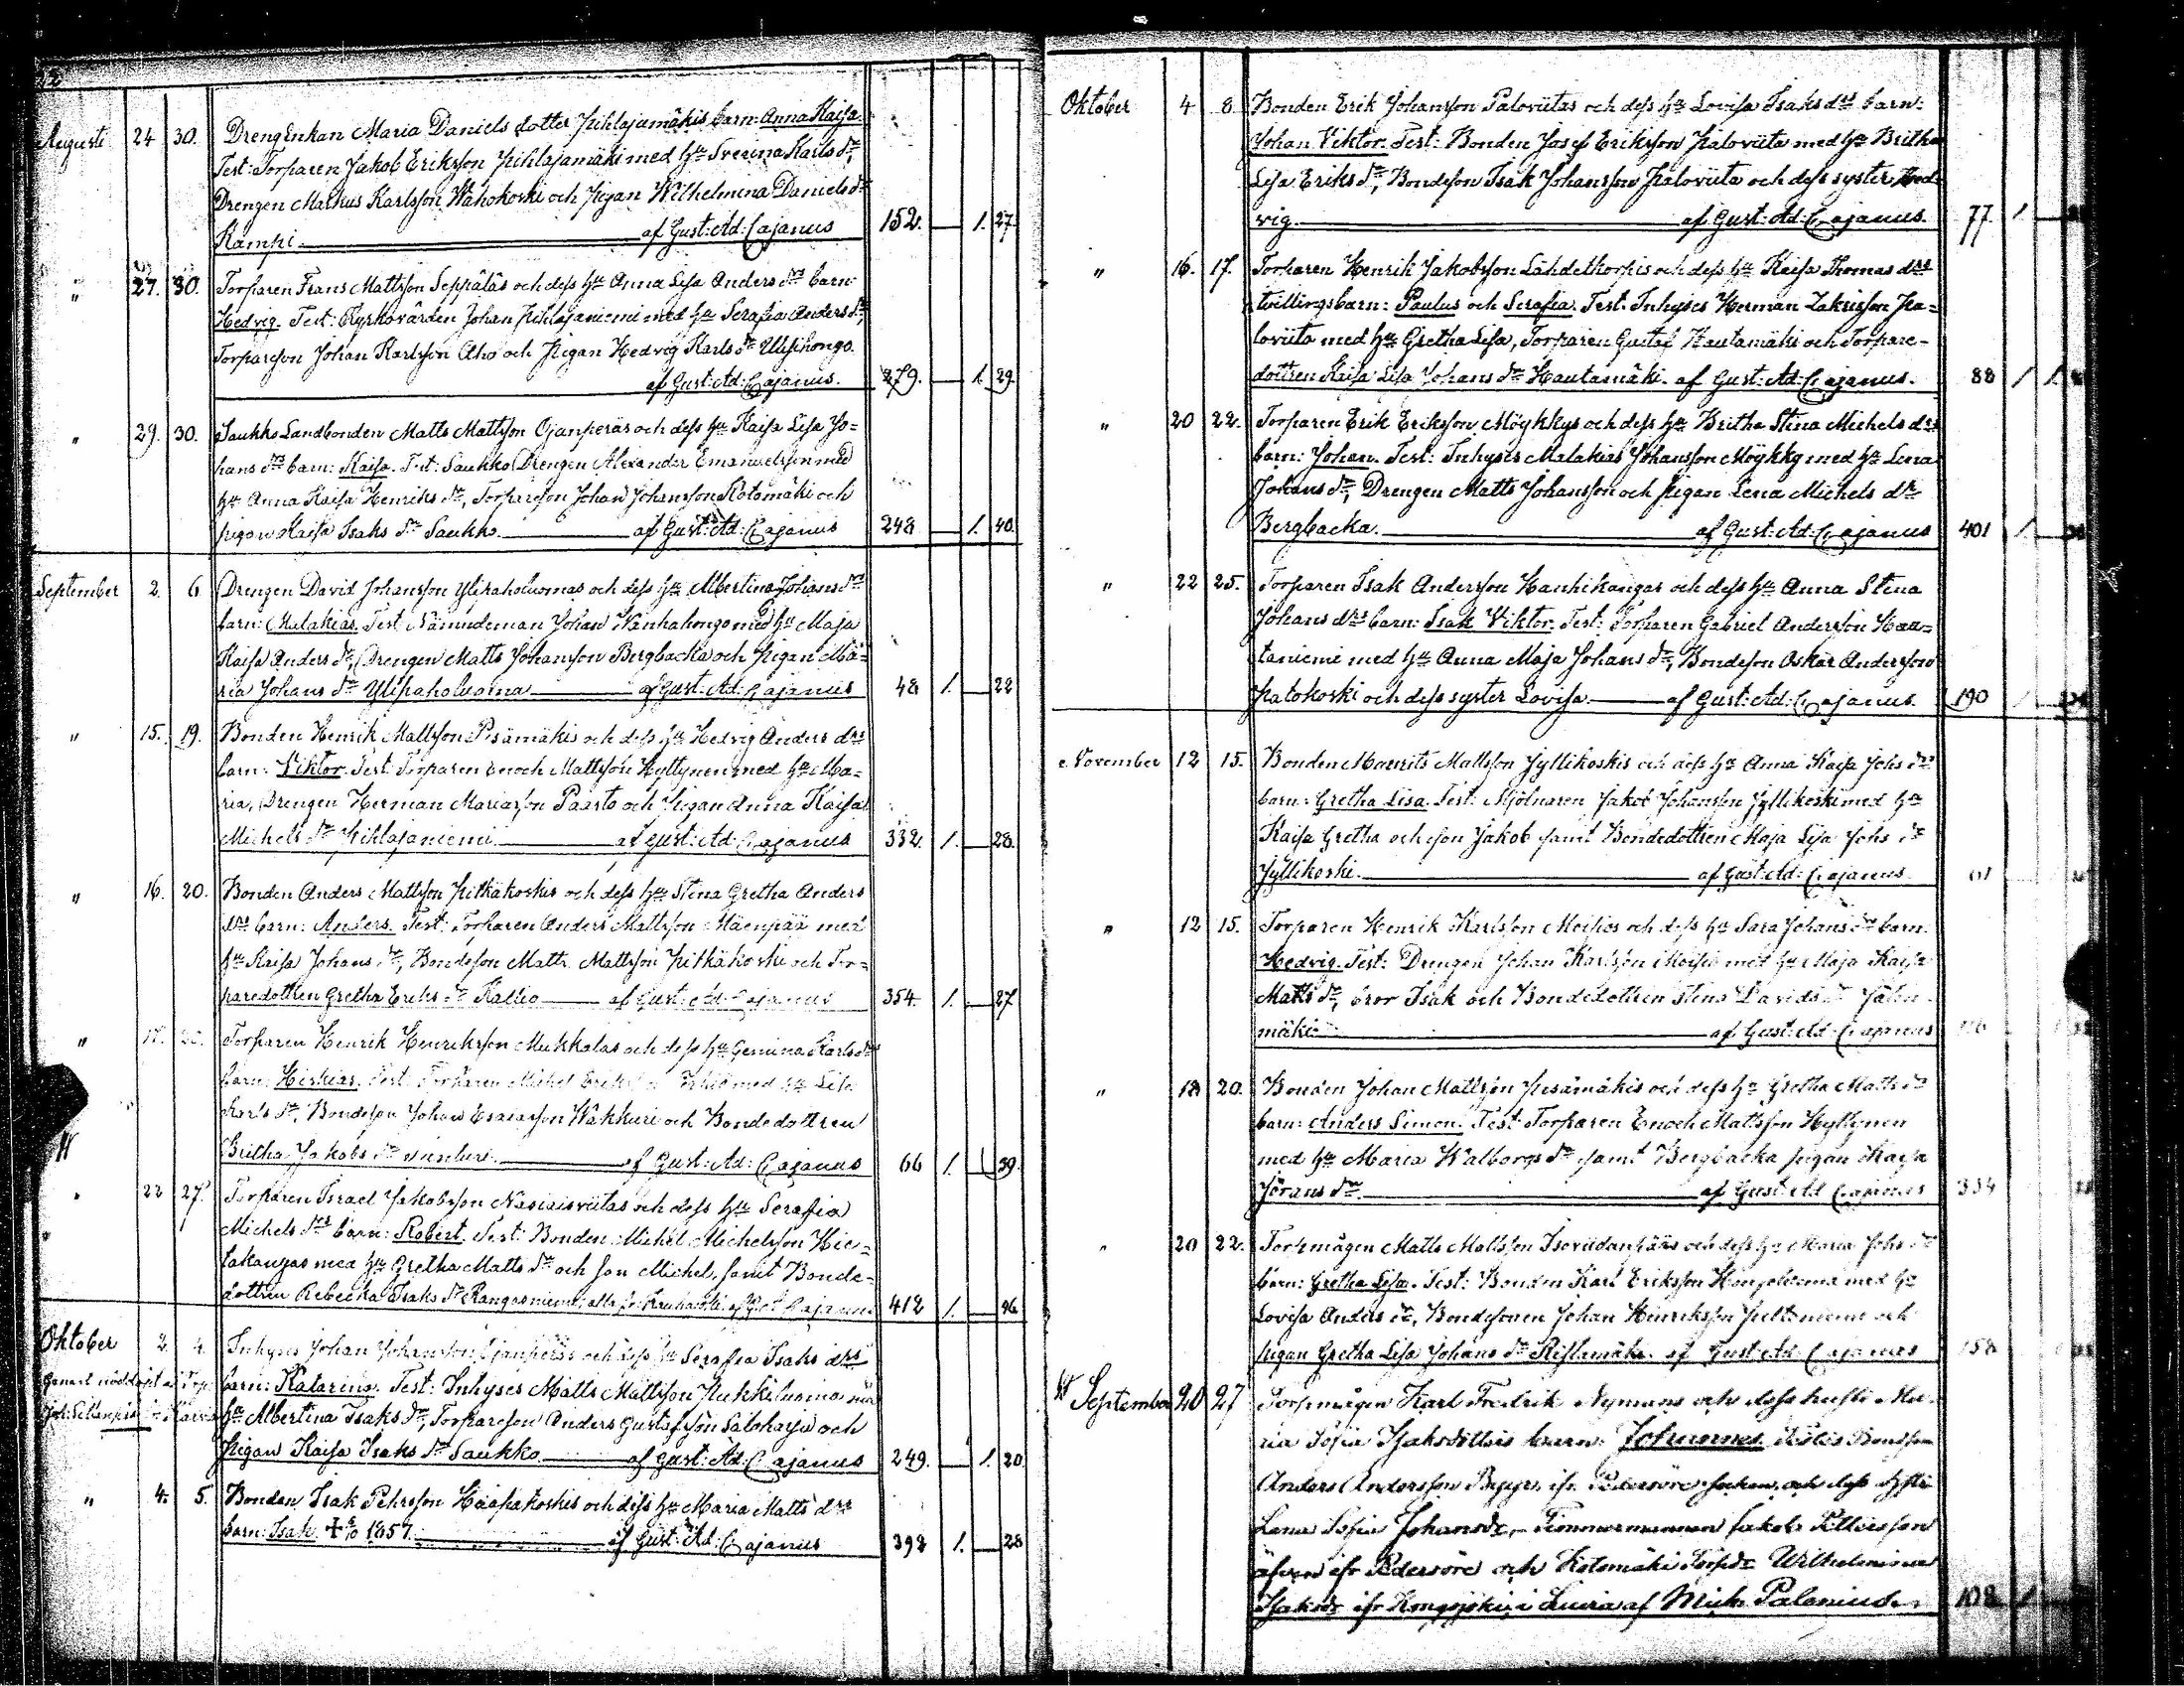 Augusti 24 30. Drengenkan Maria Daniels dotter Pihlajamäkis barn: Anna Kaisa.
Test: Torparen Jakob Eriksson Pihlajamäki med hu Sverina Karls dr,
Drengen Markus Karlsson Wähäkoski och Pigan Wilhelmina Daniels dr
Kampi. af Gust: Ad: Cajanus 152. 1. 27.
" 27. 30. Torparen Frans Mattsson Seppäläs och dess hu Anna Lisa Anders drs barn:
Hedvig. Test: Kyrkovärden Johan Pihlajaniemi med hu Serafia Anders dr,
Torpareson Johan Karlsson Aho och Pigan Hedvig Karls dr Ullsihongo.
af Gust: Ad: Cajanus. 279. 1. 29.
" 29. 30. Saukko Landbonden Matts Mattsson Ojanperäs och dess hu Kaisa Lisa Jo=
hans drs barn: Kaisa. Test: Saukko Drengen Alexander Emanuelsson med
hu Anna Kaisa Henriks dr, Torpareson Johan Johansson Kotomäki och
pigan Kaisa Isaks dr Saukko. af Gust: Ad: Cajanus 248 1. 40.
September 2. 6 Drengen David Johansson Ylipaholuomas och dess hu Albertina Johans drs
barn: Malakias. Test Nämndeman Johan Wanhahongo med hu Maja
Kaisa Anders dr, Drengen Matts Johansson Bergbacka och Pigan Ma=
ria Johans dr Ylipaholuoma af Gust: Ad: Cajanus 48 1. 22
" 15. 19. Bonden Henrik Mattsson Pesämäkis och dess hu Hedvig Anders drs
barn: Viktor. Test: Torparen Enoch Mattsson Hyttynen med hu Ma=
ria, Drengen Herman Mariasson Paarto och Pigan Anna Kaisa
Michels dr Pihlajaniemi. af Gust: Ad: Cajanus 332. 1. 28.
" 16. 20. Bonden Anders Mattsson Pitkäkoskis och dess hu Stina Gretha Anders
drs barn: Anders. Test: Torparen Anders Mattsson Mäenpää med
hu Kaisa Johans dr, Bondeson Matts Mattsson Pitkäkoski och Tor=
paredottren Gretha Eriks dr Kallio af Gust: Ad: Cajanus 354. 1. 27
" 17. Torparen Henrik Henriksson Mukkalas och dess hu Gemina Karls drs
barn: Hiskias. Test: Torparen Michel med hu Lisa
Karls dr, Bondeson Johan Esaiasson Wäkkuri och Bondedottren
Britha Jakobs dr af Gust: Ad: Cajanus 66 1. 39.
" 22 27. Torparen Israel Jakobsson och dess hu Serafia
Michels drs barn: Robert. Test: Bonden Michel Michelsson Hie=
takangas med hu Gretha Matts dr och son Michel, samt Bonde=
dottren Rebecka Isaks dr Kangasniemi 412 1. 26
Oktober 2. 4. Inhyses Johan Johansson Ojanperäs och dess hu Serafia Isaks drs
barn: Katarina. Test: Inhyses Matts Mattsson Pukkiluoma med
hu Albertina Isaks dr, Torpareson Anders Gustafsson Saloharju och
Pigan Kaisa Isaks dr Saukko. af Gust: Ad: Cajanus 249. 1. 20
" 4. 5. Bonden Isak Pehrsson Haapakoskis och dess hu Maria Matts drs
barn: Isak. 1857. af Gust: Ad: Cajanus 398 1. 28
Oktober 4 8. Bonden Erik Johansson Paloviitas och dess hu Lovisa Isaks drs barn:
Johan Viktor. Test: Bonden Josef Eriksson Paloviita med hu Britha
Lisa Eriks dr, Bondeson Isak Johansson Paloviita och dess syster Hed=
vig. af Gust: Ad: Cajanus. 77. 1
" 16. 17. Torparen Henrik Jakobsson Lähdekorpis och dess hu Kaisa Thomas drs
tvillingsbarn: Paulus och Serafia. Test. Inhyses Herman Zakrisson Pa=
loviita med hu Gretha Lisa, Torparen Gustaf Hautamäki och Torpare=
dottren Kaisa Lisa Johans dr Hautamäki. af Gust: Ad: Cajanus. 88 1 1
" 20 22. Torparen Erik Eriksson Möykkys och dess hu Britha Stina Michels drs
barn: Johan. Test: Inhyses Malakias Johansson Möykky med hu Lena
Johans dr, Drengen Matts Johansson och Pigan Lena Michels dr
Bergbacka. af Gust: Ad: Cajanus 401 1
" 22 25. Torparen Isak Andersson Hanhikangas och dess hu Anna Stina
Johans drs barn: Isak Viktor. Test: Torparen Gabriel Andersson Hau=
taniemi med hu Anna Maja Johans dr, Bondeson Oskar Andersson
Patokoski och dess syster Lovisa. af Gust: Ad: Cajanus. 190
November 12 15. Bonden Maurits Mattsson Jyllikoskis och dess hu Anna Kaisa Johs drs
barn: Gretha Lisa. Test: Mjölnaren Jakob Johansson Jyllikoski med hu
Kaisa Gretha och son Jakob samt Bondedottren Maja Lisa Johs dr
Jyllikoski. af Gust: Ad: Cajanus.
" 12 15. Torparen Henrik Karlsson Moisios och dess hu Sara Johans drs barn:
Hedvig. Test: Drengen Johan Karlsson Moisio med hu Maja Kaisa
Matts dr, bror Isak och Bondedottren Stina Davids dr
mäki af Gust: Ad: Cajanus
" 18 20. Bonden Johan Mattsson Pesämäkis och dess hu Gretha Matts drs
barn: Anders Simon. Test: Torparen Enoch Mattsson Hyttynen
med hu Maria Walborgs dr samt Bergbacka pigan Kaisa
Jörans dr. af Gust: Ad: Cajanus 334
" 20 22. Torpmågen Matts Mattsson och dess hu Maria Johs drs
barn: Gretha Lisa. Test: Bonden Karl Eriksson Honkoluoma med hu
Lovisa Anders dr, Bondesonen Johan Henriksson Peltoniemi och
pigan Gretha Lisa Johans dr Ristimäki. af Gust: Ad: Cajanus 158
September 20 27 Torpmågen Karl Fredrik Nymans och dess hustru Ma-
ria Sofia Isaksdotters barn: Johannes. Testes Bondson
Anders Andersson ifr. Pedersöre socken, och dess hustru
Lena Sofia Johansdr, Timmermannen Jakob
äfven ifr Pedersöre och Kotomäki Torpdr Wilhelmina
Isaksdr ifr af Mich. Palonius. 108 1